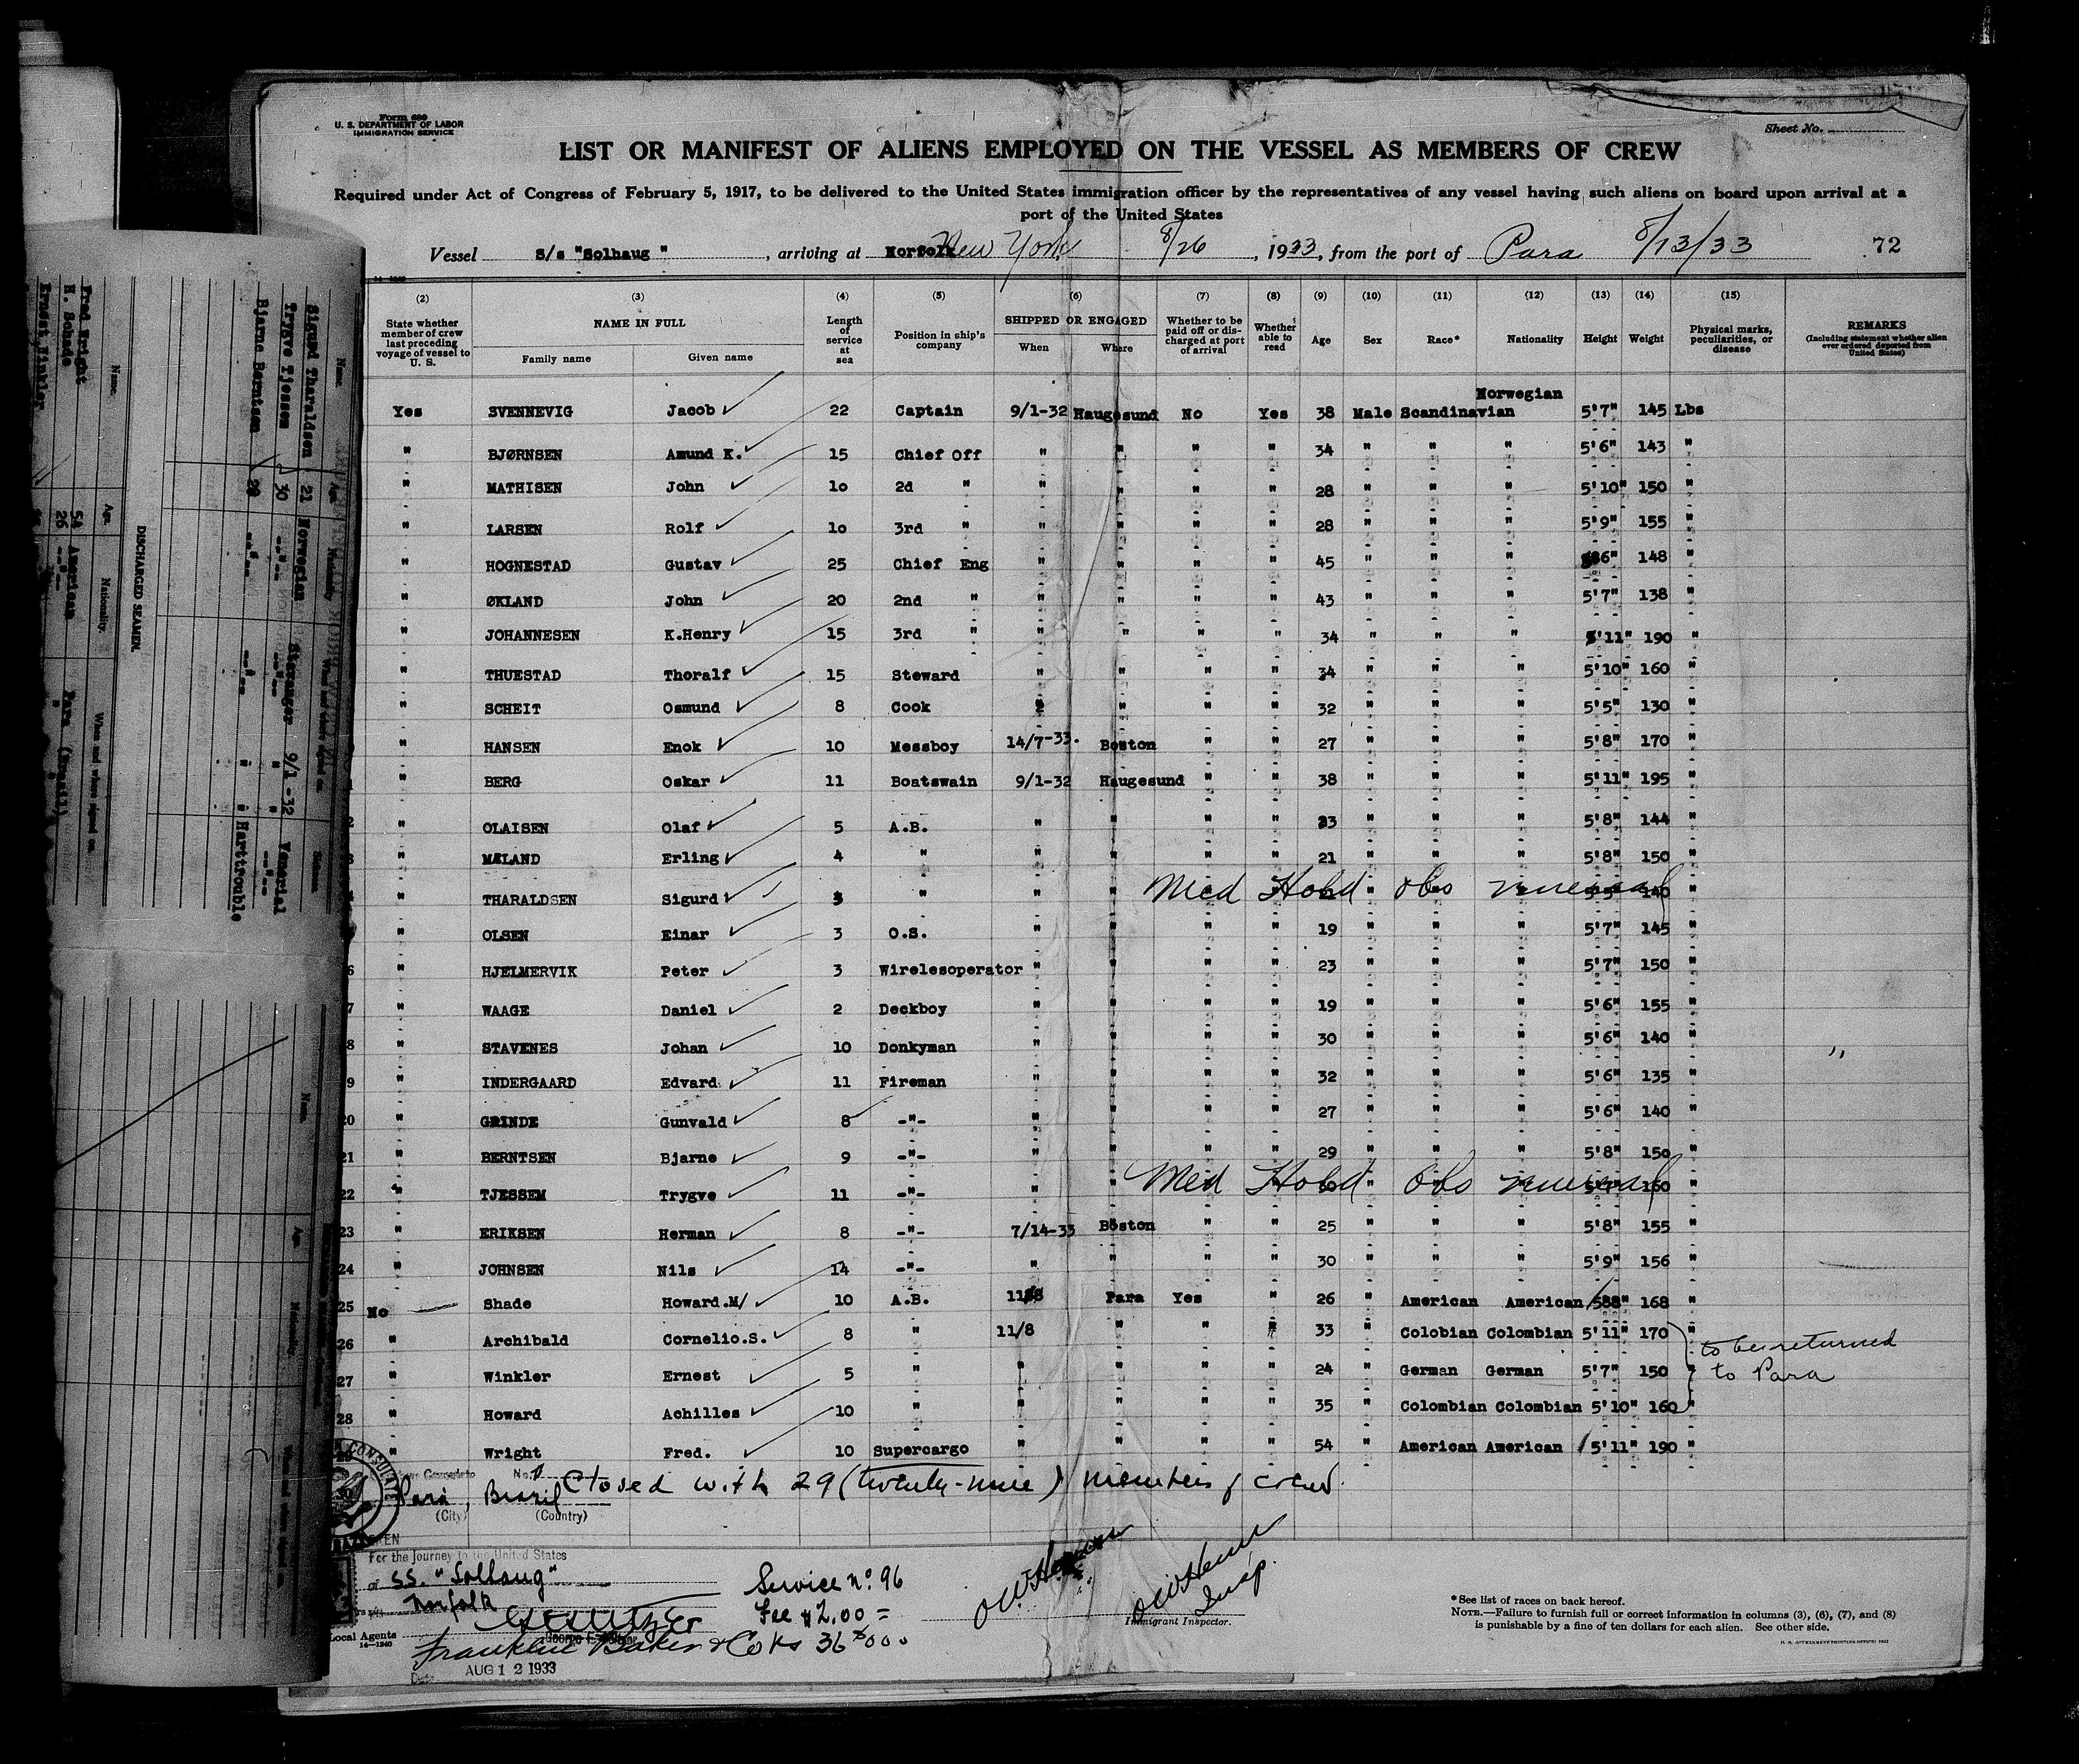 Form 680
U. S. DEPARTMENT OF LABOR
IMMIGRATION SERVICE
Sheet No.
LIST OR MANIFEST OF ALIENS EMPLOYED ON THE VESSEL AS MEMBERS OF CREW
Required under Act of Congress of February 5, 1917, to be delivered to the United States immigration officer by the representatives of any vessel having such aliens on board upon arrival at a
port of the United States
Vessel S/s "Solhaug " , arriving at Norfolk New York 8/26 , 1933, from the port of Para 8/13/33 72
(2) (3) (4) (5) (6) (7) (8) (9) (10) (11) (12) (13) (14) (15)
State whether member of crew last preceding voyage of vessel to U. S. NAME IN FULL Family name Given name Length of service at sea Position in ship's company SHIPPED OR ENGAGED When Where Whether to be paid off or discharged at port of arrival Whether able to read Age Sex Race* Nationality Height Weight Physical marks, peculiarities, or disease REMARKS (Including statement whether alien ever ordered deported from United States)
Yes SVENNEVIG Jacob 22 Captain 9/1-32 Haugesund No Yes 38 Male Scandinavian Norwegian 5'7" 145 Lbs
" BJØRNSEN Amund K. 15 Chief Off " " " " 34 " " " 5'6" 143 "
" MATHISEN John 1o 2d " " " " " 28 " " " 5'10" 150 "
" LARSEN Rolf 1o 3rd " " " " " 28 " " " 5'9" 155 "
" HOGNESTAD Gustav 25 Chief Eng " " " " 45 " " " 6" 148 "
" ØKLAND John 20 2nd " " " " " 43 " " " 5'7" 138 "
" JOHANNESEN K.Henry 15 3rd " " " " " 34 " " " 5'11" 190 "
" THUESTAD Thoralf 15 Steward " " " " 34 " " " 5'10" 160 "
" SCHEIT Osmund 8 Cook " " " " 32 " " " 5'5" 130 "
" HANSEN Enok 10 Messboy 14/7-33. Boston " " 27 " " " 5'8" 170 "
" BERG Oskar 11 Boatswain 9/1-32 Haugesund " " 38 " " " 5'11" 195 "
" OLAISEN Olaf 5 A.B. " " " " 23 " " " 5'8" 144 "
" MÆLAND Erling 4 " " " " " 21 " " " 5'8" 150 "
" THARALDSEN Sigurd " " " Med Hold obs venereal 140 "
" OLSEN Einar 3 O.S. " " " " 19 " " " 5'7" 145 "
6 " HJELMERVIK Peter 3 Wirelesoperator " " " " 23 " " " 5'7" 150 "
7 " WAAGE Daniel 2 Deckboy " " " " 19 " " " 5'6" 155 "
8 " STAVENES Johan 10 Donkyman " " " " 30 " " " 5'6" 140 " "
9 " INDERGAARD Edvard 11 Fireman " " " " 32 " " " 5'6" 135 "
20 " GRINDE Gunvald 8 -"- " " " " 27 " " " 5'6" 140 "
21 " BERNTSEN Bjarne 9 -"- " " " " 29 " " " 5'8" 150 "
22 " TJESSEM Trygve 11 -"- " " Med Hold obs venereal "
23 " ERIKSEN Herman 8 -"- 7/14-33 Boston " " 25 " " " 5'8" 155 "
24 " JOHNSEN Nils 14 -"- " " " " 30 " " " 5'9" 156 "
25 No Shade Howard.M/ 10 A.B. 11/8 Para Yes " 26 " American American 168 "
26 " Archibald Cornelio.S. 8 " 11/8 " " " 33 " Colobian Colombian 5'11" 170 " to be returned
27 " Winkler Ernest 5 " " " " " 24 " German German 5'7" 150 " to Para
28 " Howard Achilles 10 " " " " " 35 " Colombian Colombian 5'10" 160 "
29 " Wright Fred. 10 Supercargo " " " " 54 " American American 5'11" 190 "
Closed with 29 (twenty-nine) members of crew.
Para, Brazil
(City) (Country)
For the Journey to the United States
of SS. "Solhaug"
Norfolk
Service No. 96
Fee $2.00 =
Local Agents
14-1240
Franklin Baker & Co Rs 36$000
Date AUG 12 1933
Insp.
Immigrant Inspector.
*See list of races on back hereof.
NOTE.—Failure to furnish full or correct information in columns (3), (6), (7), and (8)
is punishable by a fine of ten dollars for each alien. See other side.
Name. Age. Nationality. When and where signed on.
Sigurd Tharaldsen 21 Norwegian Stavanger 9/1-32 Venerial
Trygve Tjessem 30 --"-- --"-- " " --"--
Bjarne Berntsen 29 --"-- --"-- " " Harttrouble
DISCHARGED SEAMEN.
Name. Age. Nationality. When and where signed on.
Fred Wright 54 American Para (Brasil)
H. Schade 26 --"-- " "
Ernest Winkler